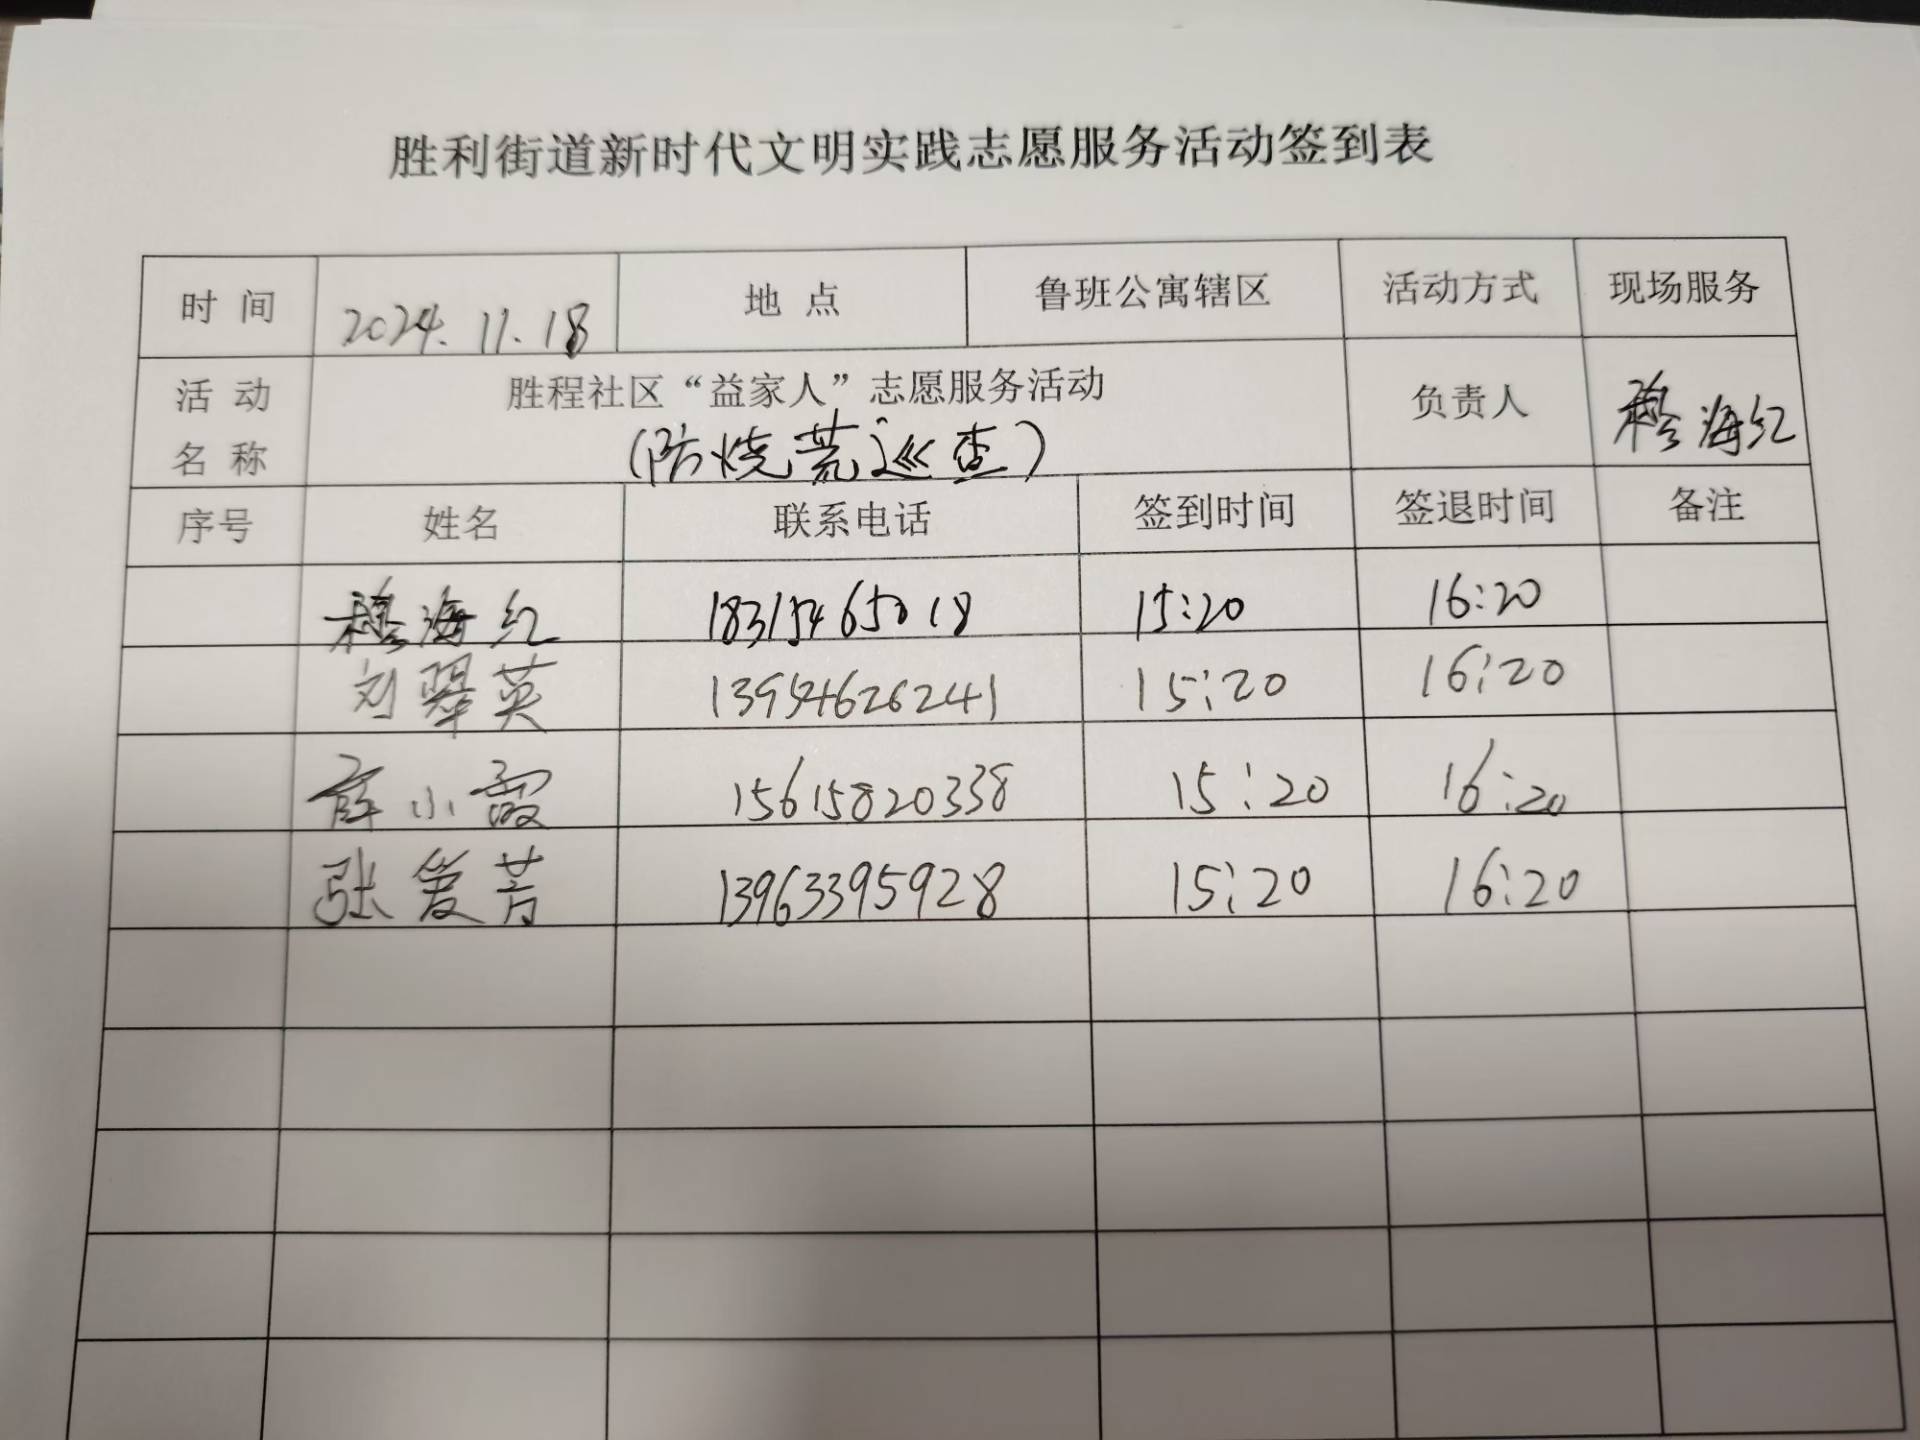 胜利街道新时代文明实践志愿服务活动签到表
时 间 2024.11.18 地 点 鲁班公寓辖区 活动方式 现场服务
活 动 名 称 胜程社区“益家人”志愿服务活动 负责人 穆海红
(防烧荒巡查)
序号 姓名 联系电话 签到时间 签退时间 备注
穆海红 18315465018 15:20 16:20
刘翠英 13954626241 15:20 16:20
薛小霞 15615820338 15:20 16:20
张爱芳 13963395928 15:20 16:20